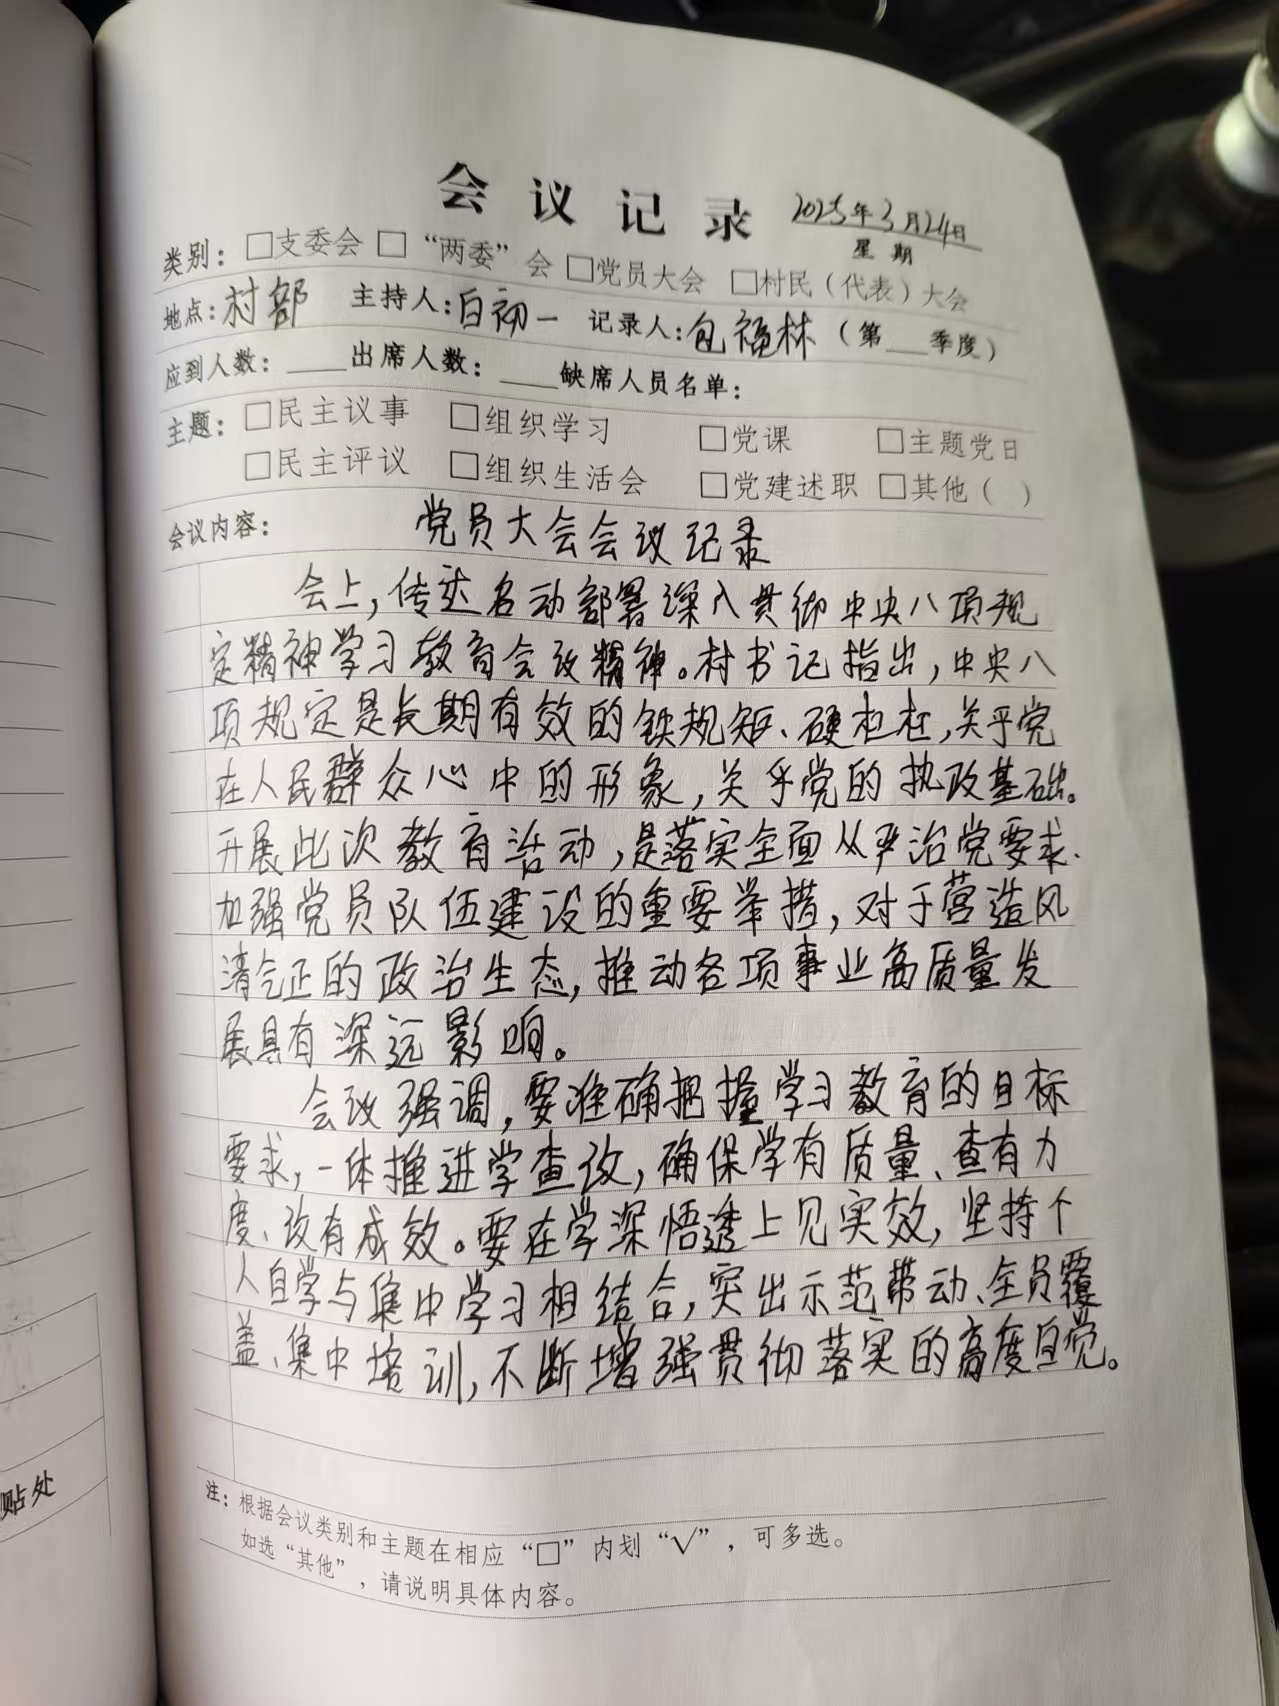 会议记录 2025年3月24日
星期
类别：□支委会 □“两委”会 □党员大会 □村民（代表）大会
地点：村部 主持人：白初一 记录人：包福林（第___季度）
应到人数：____出席人数：____缺席人员名单：
主题：□民主议事 □组织学习 □党课 □主题党日
□民主评议 □组织生活会 □党建述职 □其他（ ）
会议内容： 党员大会会议记录
会上，传达启动部署深入贯彻中央八项规
定精神学习教育会议精神。村书记指出，中央八
项规定是长期有效的铁规矩、硬杠杠，关乎党
在人民群众心中的形象，关乎党的执政基础。
开展此次教育活动，是落实全面从严治党要求、
加强党员队伍建设的重要举措，对于营造风
清气正的政治生态，推动各项事业高质量发
展具有深远影响。
会议强调，要准确把握学习教育的目标
要求，一体推进学查改，确保学有质量、查有力
度、改有成效。要在学深悟透上见实效，坚持个
人自学与集中学习相结合，突出示范带动、全员覆
盖、集中培训，不断增强贯彻落实的高度自觉。
注：根据会议类别和主题在相应“□”内划“√”，可多选。
如选“其他”，请说明具体内容。
贴处